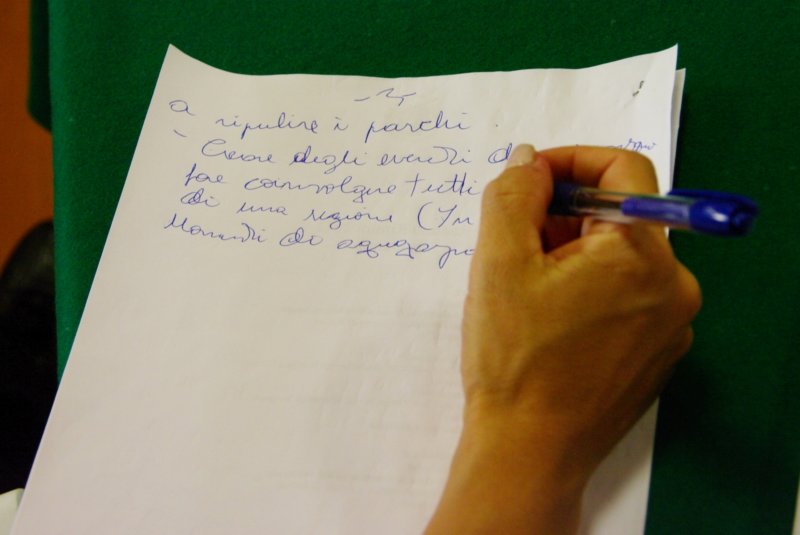 a ripulire i parchi.
- Creare degli eventi
fare coinvolgere tutti
di una regione (In
Momenti di aggregazio